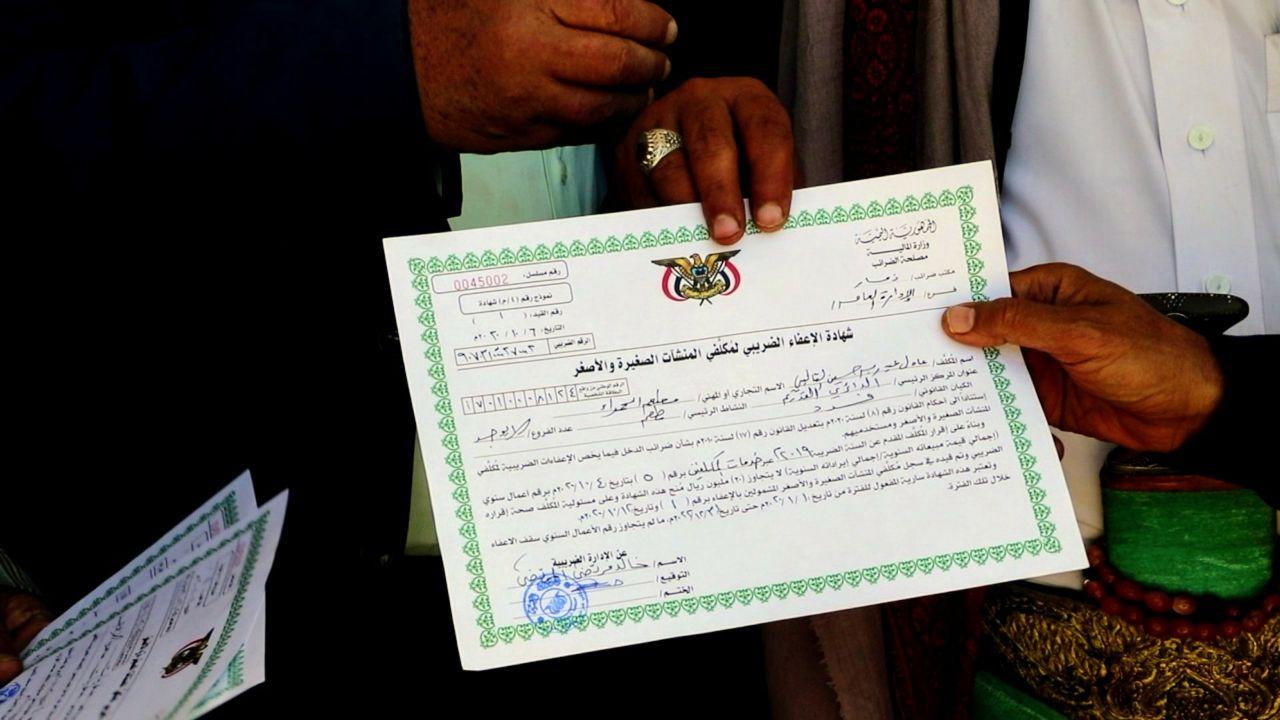 الجمهورية اليمنية
وزارة المالية
مصلحة الضرائب
مكتب ضرائب/ ذمار
فرع/ الإدارة العامة
رقم مسلسل: 0045002
نموذج رقم (٤/م) شهادة
رقم القيد: ( ١ )
التاريخ: ٦ / ١٠ / ٢٠٢٠م
الرقم الضريبي
شهادة الإعفاء الضريبي لمكلفي المنشآت الصغيرة والأصغر
اسم المكلف/ عادل
الرقم الوطني من واقع البطاقة الشخصية ١٧٠١٠٠٠٨١٢٤
عنوان المركز الرئيسي/ الاسم التجاري أو المهني/ مطعم الحمراء
الكيان القانوني/ فرد النشاط الرئيسي/ مطعم عدد الفروع/ لا يوجد
إستناداً الى احكام القانون رقم (٨) لسنة ٢٠٢٠م بتعديل القانون رقم (١٧) لسنة ٢٠١٠م بشأن ضرائب الدخل فيما يخص الإعفاءات الضريبية لمكلفي
المنشآت الصغيرة والأصغر ومستخدميهم.
وبناءً على إقرار المكلف المقدم عن السنة الضريبية ٢٠١٩ عبر خدمات المكلفين برقم ( ٥ ) بتاريخ ٤ / ١٠ / ٢٠٢٠م برقم اعمال سنوي
(إجمالي قيمة مبيعاته السنوية/إجمالي إيراداته السنوية) لا يتجاوز (٢٠) مليون ريال منح هذه الشهادة وعلى مسئولية المكلف صحة إقراره
الضريبي وتم قيده في سجل مكلفي المنشآت الصغيرة والأصغر المشمولين بالإعفاء برقم ( ١ ) وتاريخ
وتعتبر هذه الشهادة سارية المفعول للفترة من تاريخ حتى تاريخ ما لم يتجاوز رقم الأعمال السنوي سقف الاعفاء
خلال تلك الفترة.
عن الإدارة الضريبية
الاســم/ خالد
التوقيع/
الختــم/